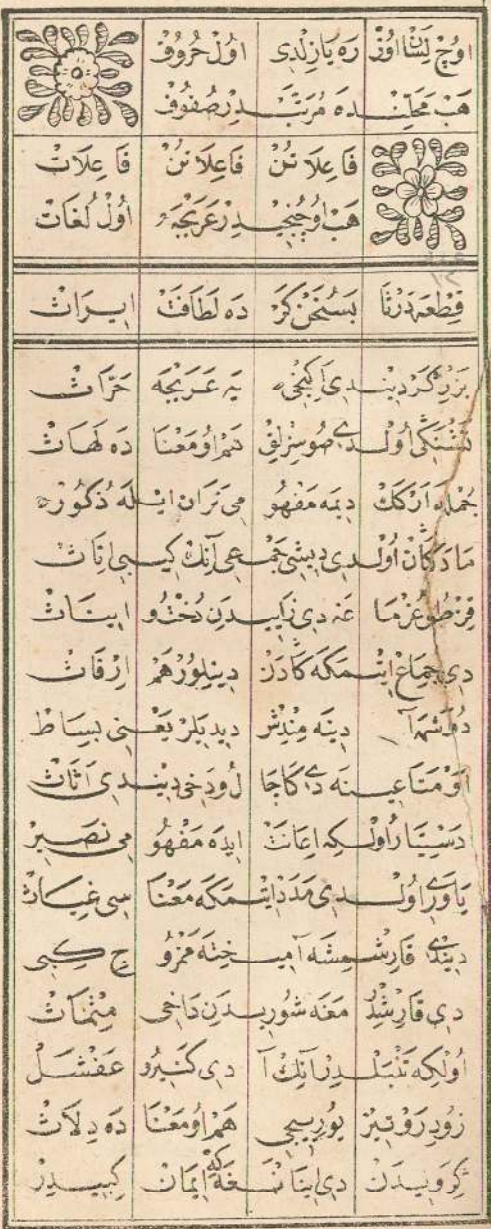 اوُچْ لِسَٰان اوُزْ رَه يَازِلْدِي اوُلْ حُرُوفْ
هَبْ مَحَلِّنْدَه مُرَتَّبْدِرْ صُفُوفْ
فَاعِلَاتُنْ فَاعِلَاتُنْ فَاعِلَاتْ
هَبْ اوُچُنْجِيدِرْ عَرَبْجَه اوُلْ لُغَاتْ
قِطْعَه دَرْثَا بَسُخَنْ كَرْدَه لَطَافَتْ اِيرَاثْ
بَزْرِكَرْ دِينْدِي اَكِنْجِيَه عَرَبْجَه حَرَّاثْ
تَشْنَكِي اوُلْدِي صُوسِزْلِقْ هَمْ اوُ مَعْنَادَه لَهَاثْ
جُمْلَه اَرْكَكْ دِيمَه مَفْهُومِي نَرَانْ ايلَه ذُكُورْ
مَادَكَانْ اوُلْدِي دِيشِي جَمْعِي آنِكْ كِيبِي اِنَاثْ
قِزْ طُوغُرْمَاغَه دِي زَاييدَنْ دُخْتُ و ايِنَاثْ
دِي جِمَاعْ اِيتْمَكَه كَادَنْ دِينِلُورْ هَمْ اِرْفَاثْ
دُوشَمَه آدِينَه مِنْدِشْ دِيدِيلَرْ يَعْنِي بِسَاطْ
اَوْ مَتَاعِينَه دِي كَاجَالْ وُ دَخِي دِينْدِي اَثَاثْ
دَسْتِيَار اوُلْكِه اِعَانَتْ ايدَه مَفْهُومِي نَصِيرْ
يَاوَرِي اوُلْدِي مَدَدْ اِيتْمَكَه مَعْنَاسِي غِيَاثْ
دِينْدِي قَارِشْمِشَه آمِيخْتَه مَمْزُوجْ كِيبِي
دِي قَارِشْدُرْمَغَه شُورِيدَنْ دَاخِي مِثْمَاثْ
اوُلْكِه تَنْبَلْدِرْ آنِكْ آدِي كَنْبِرُو عَفْشَلْ
زُودْرَوْ تِيزْ يُورِييجِي هَمْ اوُ مَعْنَادَه دِلَاثْ
كِرَوِيدَنْ دِي اِينَانْمَغَه كِه اِيمَانْ كِيبِيدِرْ